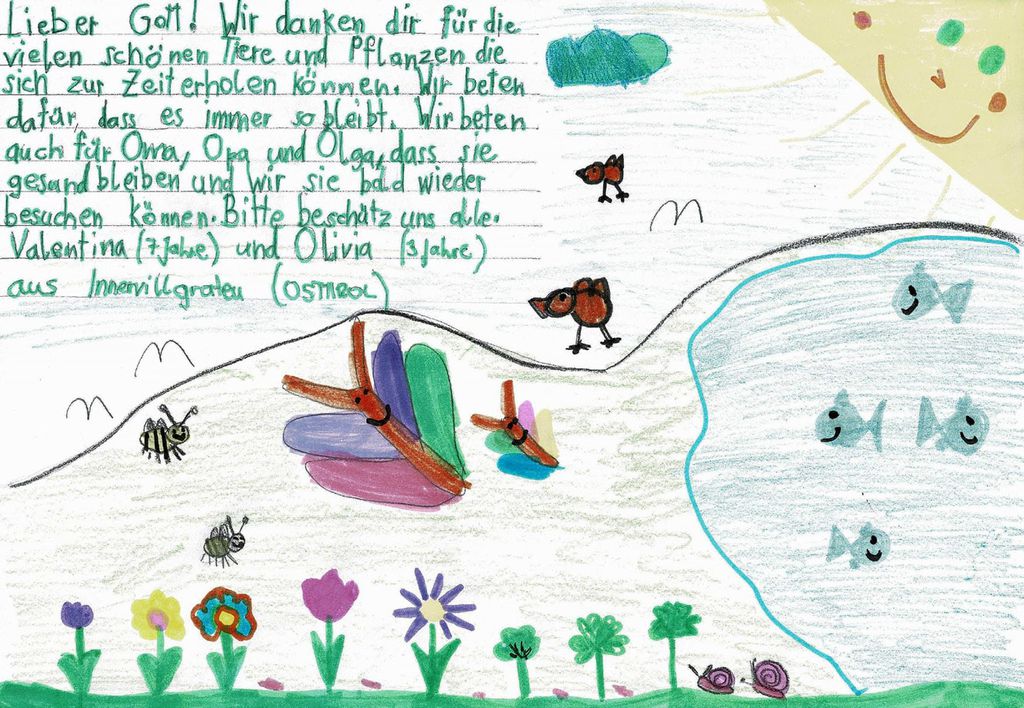 Lieber Gott! Wir danken dir für die
vielen schönen Tiere und Pflanzen die
sich zur Zeit erholen können. Wir beten
dafür, dass es immer so bleibt. Wir beten
auch für Oma, Opa und Olga, dass sie
gesund bleiben und wir sie bald wieder
besuchen können. Bitte beschütz uns alle.
Valentina (7 Jahre) und Olivia (3 Jahre)
aus Innervillgraten (OSTTIROL)